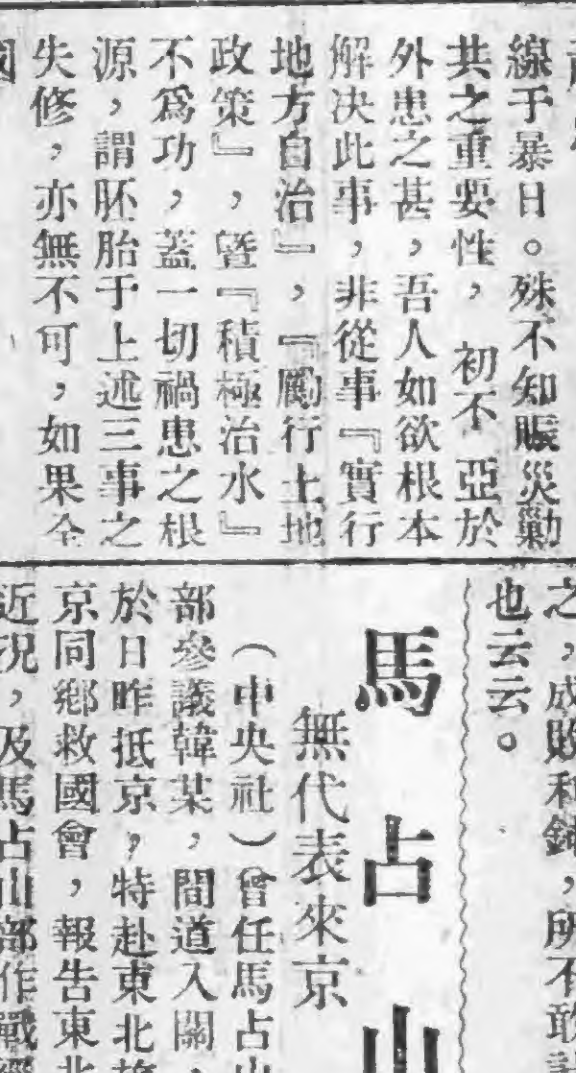 線于暴日。殊不知賑災勦
共之重要性，初不亞於
外患之甚，吾人如欲根本
解決此事，非從事『實行
地方自治』，『勵行土地
政策』，暨『積極治水』
不爲功，蓋一切禍患之根
源，謂胚胎于上述三事之
失修，亦無不可，如果全
之，成敗利鈍，所不敢計
也云云。
馬占山
無代表來京
（中央社）曾任馬占山
部參議韓某，間道入關，
於日昨抵京，特赴東北旅
京同鄉救國會，報告東北
近況，及馬占山部作戰經